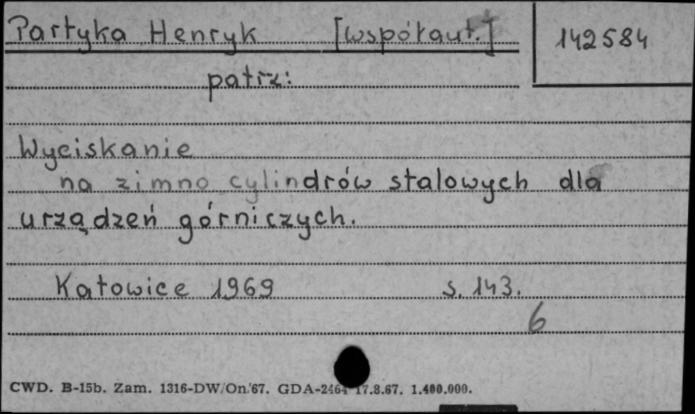 Partyka Henryk [współaut.] 142584
patrz:
Wyciskanie
na zimno cylindrów stalowych dla
urządzeń górniczych.
Katowice 1969 s. 143.
6
CWD. B-15b. Zam. 1316-DW/On/67. GDA-2464 17.8.67. 1.400.000.